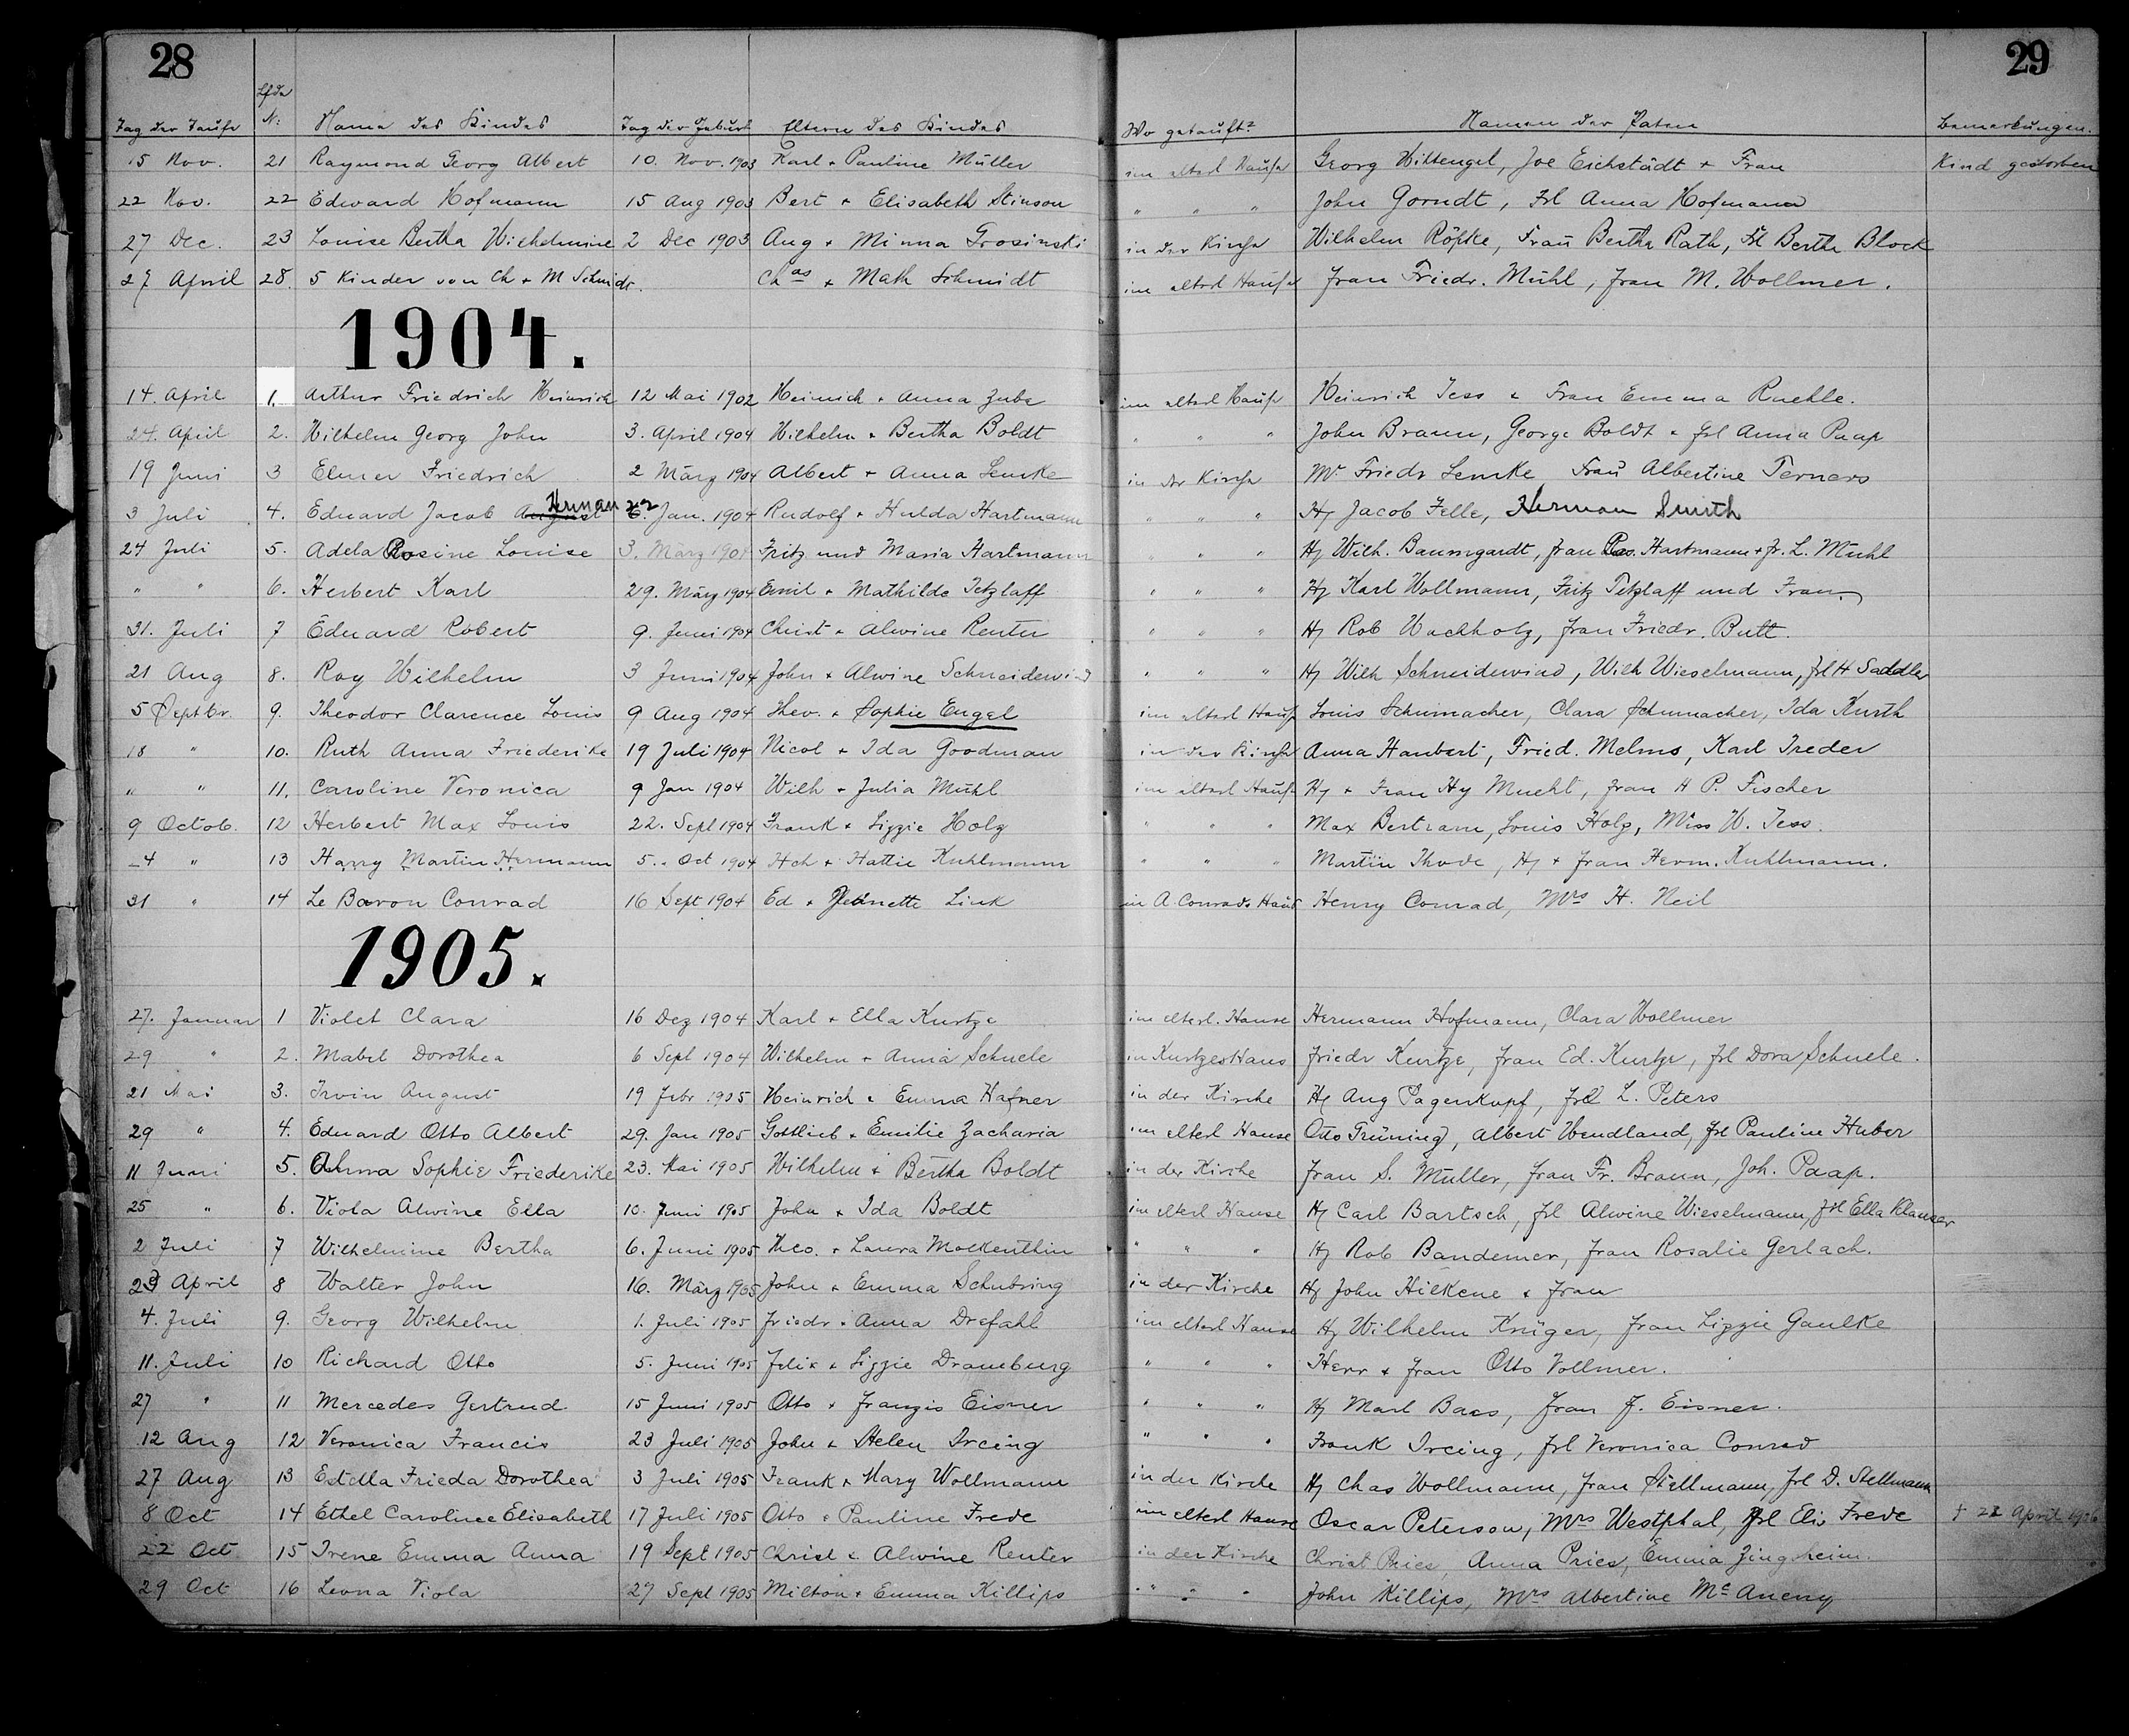 28
29
Lfde
Tag der Taufe N: Name des Kindes Tag der Geburt Eltern des Kindes Wo getauft? Namen der Paten Bemerkungen.
15 Nov. 21 Raymond Georg Albert 10. Nov. 1903 Karl + Pauline Müller im elterl Hause Georg Wittengel, Joe Eichstädt + Frau Kind gestorben
22 Nov. 22 Edward Hofmann 15 Aug 1903 Bert + Elisabeth Stinson " " " John Gorndt, Frl Anna Hofmann
27 Dec. 23 Louise Bertha Wilhelmine 2 Dec 1903 Aug + Minna Grosinski in der Kirche Wilhelm Röpke, Frau Bertha Rath, Frl Bertha Block
27 April 28. 5 Kinder von Ch + M Schmidt. Chas + Math Schmidt im elterl Hause Frau Friedr. Mühl, Frau M. Wollmer.
1904.
14. April 1. Arthur Friedrich Heinrich 12 Mai 1902 Heinrich + Anna Zube im elterl Hause Heinrich Tess + Frau Emma Ruehle.
24. April 2. Wilhelm Georg John 3. April 1904 Wilhelm + Bertha Boldt " " " John Braun, George Boldt + Frl Anna Paap
19 Juni 3 Elmer Friedrich 2 März 1904 Albert + Anna Lemke in der Kirche Mr Friedr Lemke Frau Albertine Terners
3 Juli 4. Eduard Jacob August Herman 22 Jan. 1904 Rudolf + Hulda Hartmann " " " Hr Jacob Felle, Herman Smith
24 Juli 5. Adela Rosine Louise 3. März 1904 Fritz und Maria Hartmann " " " Hr Wilh. Baumgardt, Frau Ros. Hartmann + Fr. L. Mühl
" " 6. Herbert Karl 29. März 1904 Emil + Mathilde Tetzlaff " " " Hr Karl Wollmann, Fritz Tetzlaff und Frau
31. Juli 7 Eduard Robert 9. Juni 1904 Christ + Alwine Reuter " " " Hr Rob Wachholz, Frau Friedr. Butt.
21 Aug 8. Roy Wilhelm 3 Juni 1904 John + Alwine Schneidewind " " " Hr Wilh Schneidewind, Wilh Wieselmann, Frl H Saddler
5 Septbr. 9. Theodor Clarence Louis 9 Aug 1904 Theo. + Sophie Engel im elterl Hause Louis Schumacher, Clara Schumacher, Ida Kurth
18 " 10. Ruth Anna Friederike 19 Juli 1904 Nicol + Ida Goodman in der Kirche Anna Haubert, Fried. Melms, Karl Treder
" " 11. Caroline Veronica 9 Jan 1904 Wilh + Julia Mühl im elterl Hause Hr + Frau Hy Muehl, Frau H P. Fischer
9 Octob. 12 Herbert Max Louis 22. Sept 1904 Frank + Lizzie Holz " " " Max Bertram, Louis Holz, Miss W. Tess.
-4 " 13 Harry Martin Hermann 5. Oct 1904 Hch + Hattie Kuhlmann " " " Martin Thode, Hr + Frau Herm. Kuhlmann.
31 " 14 Le Baron Conrad 16 Sept 1904 Ed + Jeanette Link in A. Conrads Haus Henry Conrad, Mrs H. Neil
1905.
27. Januar 1 Violet Clara 16 Dez 1904 Karl + Ella Kurtze im elterl. Hause Hermann Hofmann, Clara Wollmer
29 " 2. Mabel Dorothea 6 Sept 1904 Wilhelm + Anna Schuele in Kurtzes Haus Friedr Kurtze, Frau Ed. Kurtze, Frl Dora Schuele.
21 Mai 3. Irvin August 19 Febr 1905 Heinrich + Emma Hafner in der Kirche Hr Aug Pagenkopf, Frl L. Peters
29 " 4. Eduard Otto Albert 29. Jan 1905 Gottlieb + Emilie Zacharia im elterl Hause Otto Grüning, Albert Wendland, Frl Pauline Huber
11 Juni 5. Alma Sophie Friederike 23. Mai 1905 Wilhelm + Bertha Boldt in der Kirche Frau S. Müller, Frau Fr. Braun, Joh. Paap.
25 " 6. Viola Alwine Ella 10. Juni 1905 John + Ida Boldt im elterl Hause Hr Carl Bartsch, Frl Alwine Wieselmann, Frl Ella Klauser
2 Juli 7 Wilhelmine Bertha 6. Juni 1905 Theo. + Laura Molkenthin " " " Hr Rob Bandemer, Frau Rosalie Gerlach.
23 April 8 Walter John 16. März 1905 John + Emma Schubring in der Kirche Hr John Hilkene + Frau
4. Juli 9. Georg Wilhelm 1. Juli 1905 Friedr + Anna Drefahl im elterl Hause Hr Wilhelm Krüger, Frau Lizzie Gaulke
11. Juli 10 Richard Otto 5. Juni 1905 Felix + Lizzie Dramburg " " " Herr + Frau Otto Vollmer.
27 " 11 Mercedes Gertrud 15 Juni 1905 Otto + Franzis Eisner " " " Hr Marl Baes, Frau F. Eisner.
12 Aug 12 Veronica Francis 23 Juli 1905 John + Helen Ircing " " " Frank Ircing, Frl Veronica Conrad
27 Aug 13 Estella Frieda Dorothea 3 Juli 1905 Frank + Mary Wollmann in der Kirche Hr Chas Wollmann, Frau Stellmann, Frl D. Stellmann
8 Oct 14 Ethel Caroline Elisabeth 17 Juli 1905 Otto + Pauline Frede im elterl Hause Oscar Peterson, Mrs Westphal, Frl Elis Frede † 22 April 1926
22 Oct 15 Irene Emma Anna 19 Sept 1905 Christ + Alwine Reuter in der Kirche Christ Pries, Anna Pries, Emma Zingsheim.
29 Oct 16 Leona Viola 27 Sept 1905 Milton + Emma Killips " " " John Killips, Mrs Albertine Mc Aneny